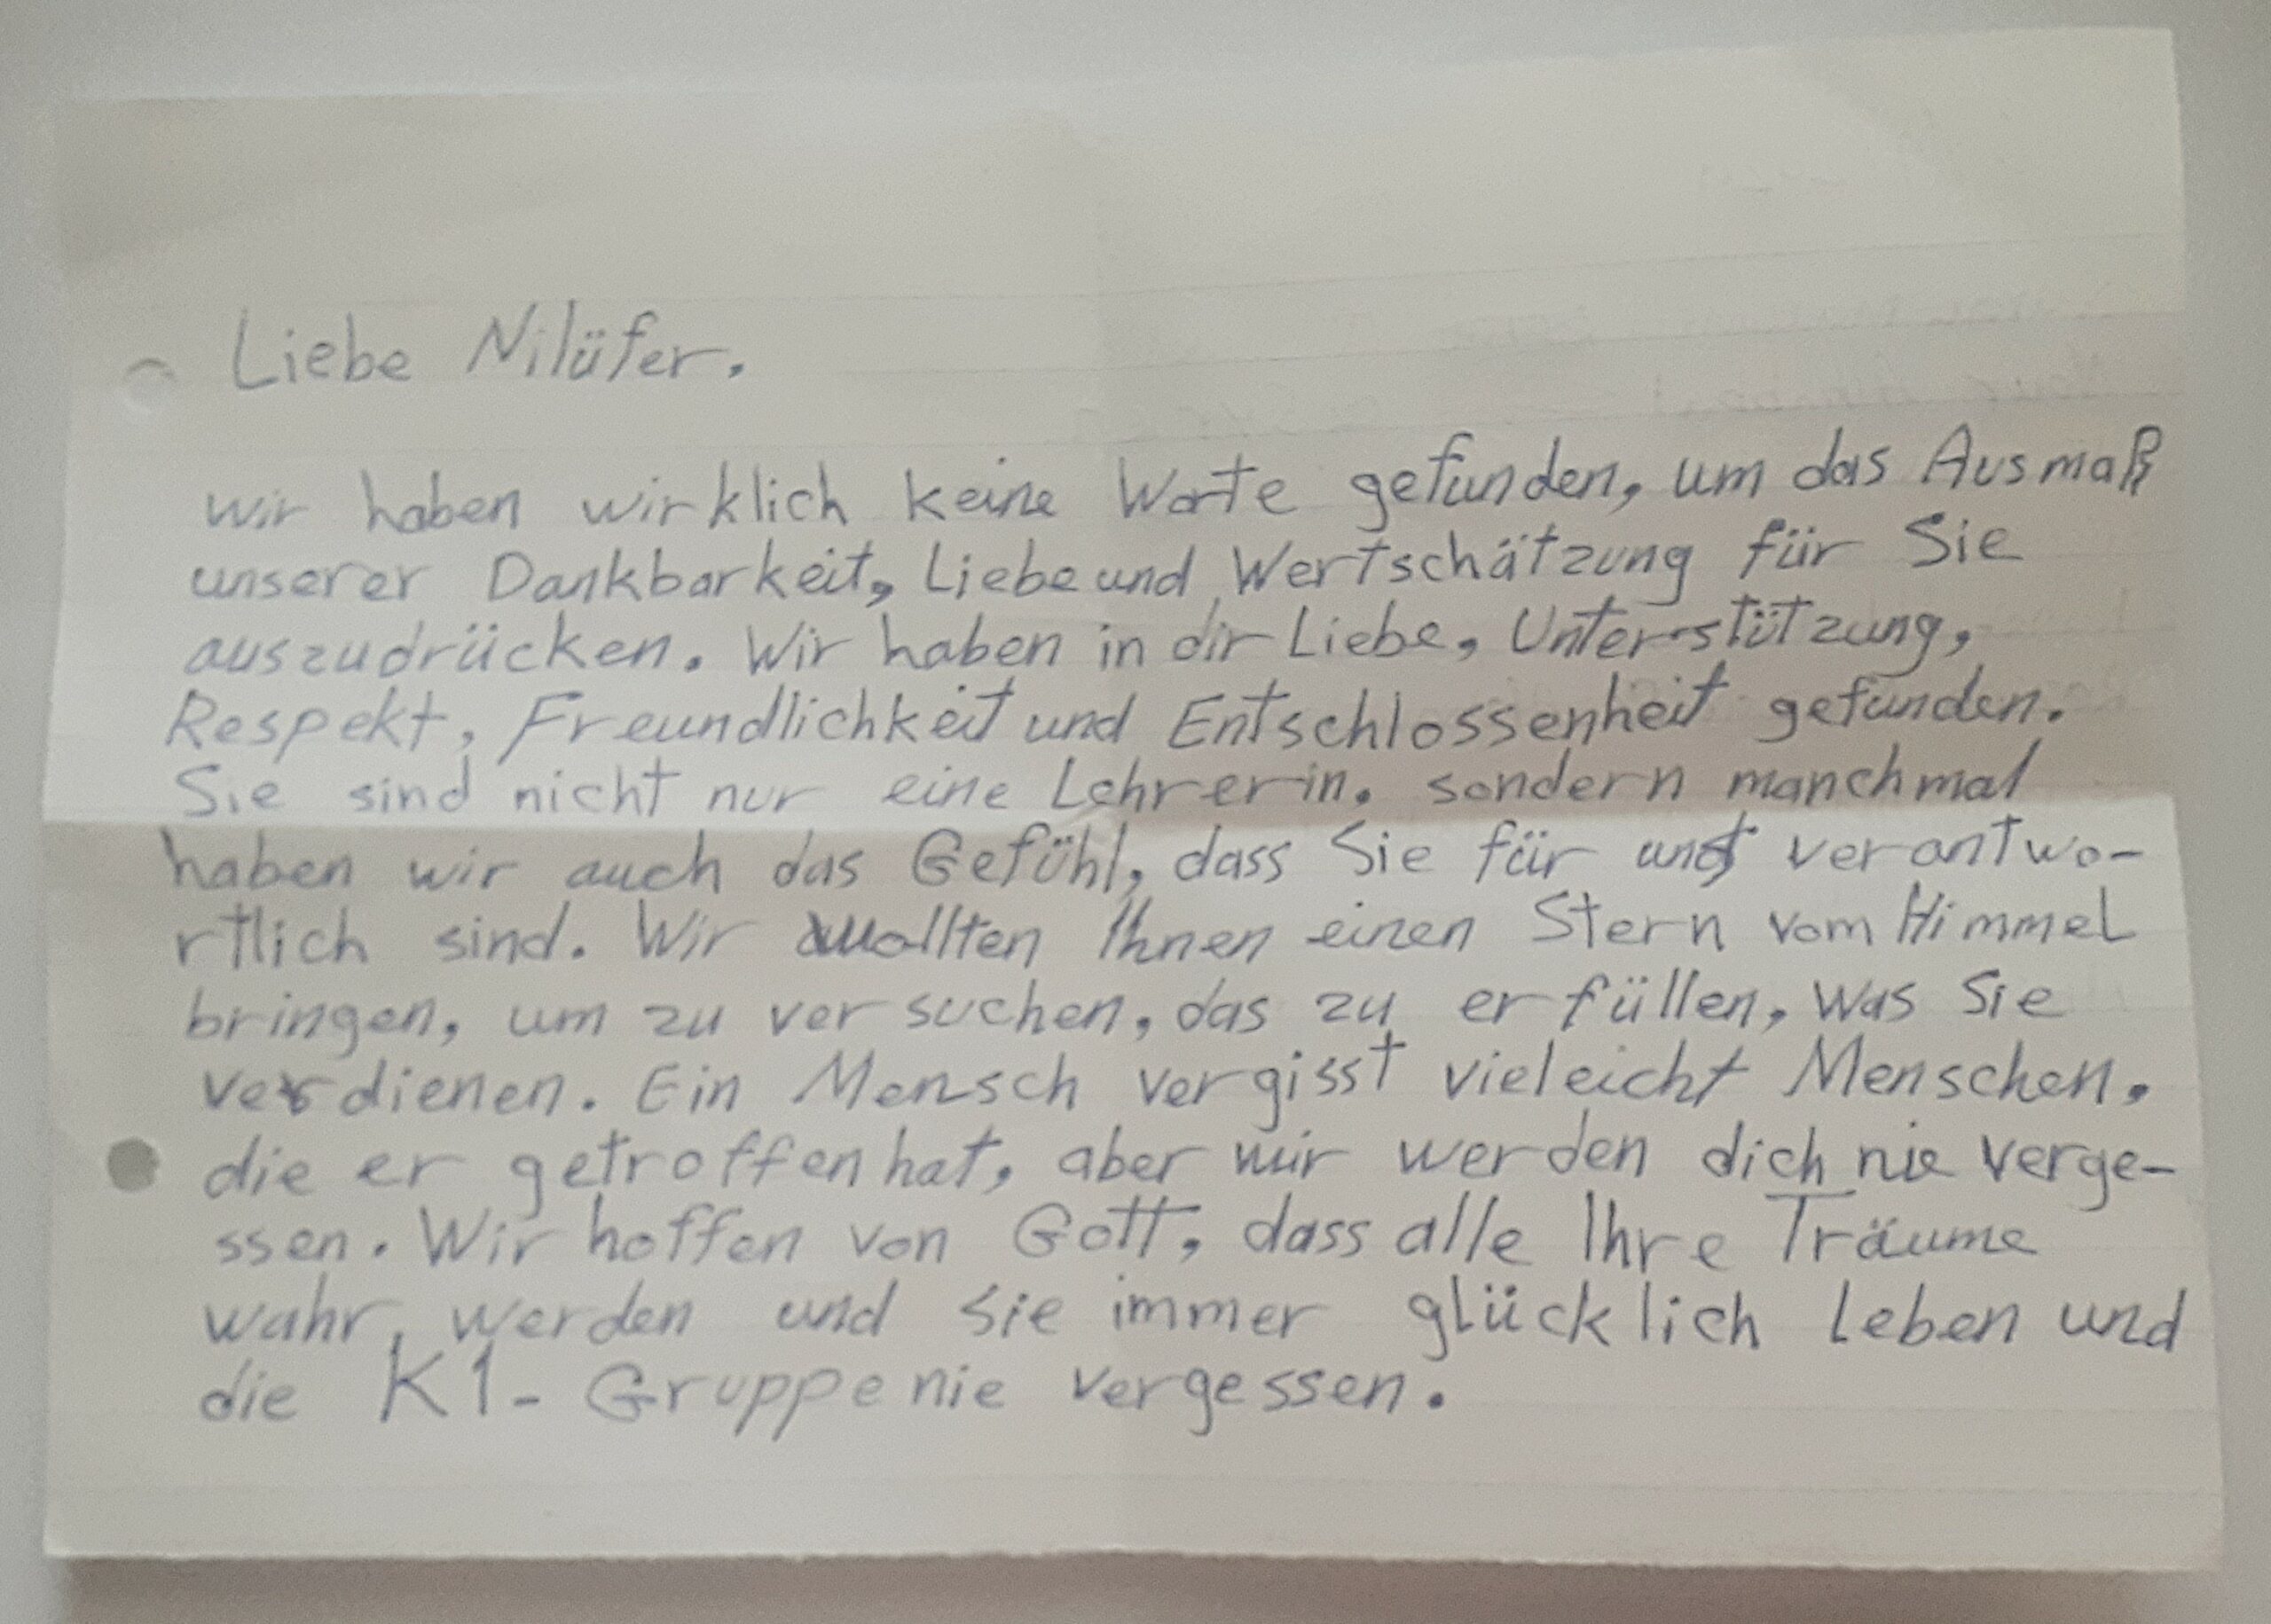 Liebe Nilüfer,
wir haben wirklich keine Worte gefunden, um das Ausmaß
unserer Dankbarkeit, Liebe und Wertschätzung für Sie
auszudrücken. Wir haben in dir Liebe, Unterstützung,
Respekt, Freundlichkeit und Entschlossenheit gefunden.
Sie sind nicht nur eine Lehrerin, sondern manchmal
haben wir auch das Gefühl, dass Sie für uns verantwo-
rtlich sind. Wir wollten Ihnen einen Stern vom Himmel
bringen, um zu versuchen, das zu erfüllen, was Sie
verdienen. Ein Mensch vergisst vieleicht Menschen,
die er getroffen hat, aber wir werden dich nie verge-
ssen. Wir hoffen von Gott, dass alle Ihre Träume
wahr werden und Sie immer glücklich leben und
die K1-Gruppe nie vergessen.